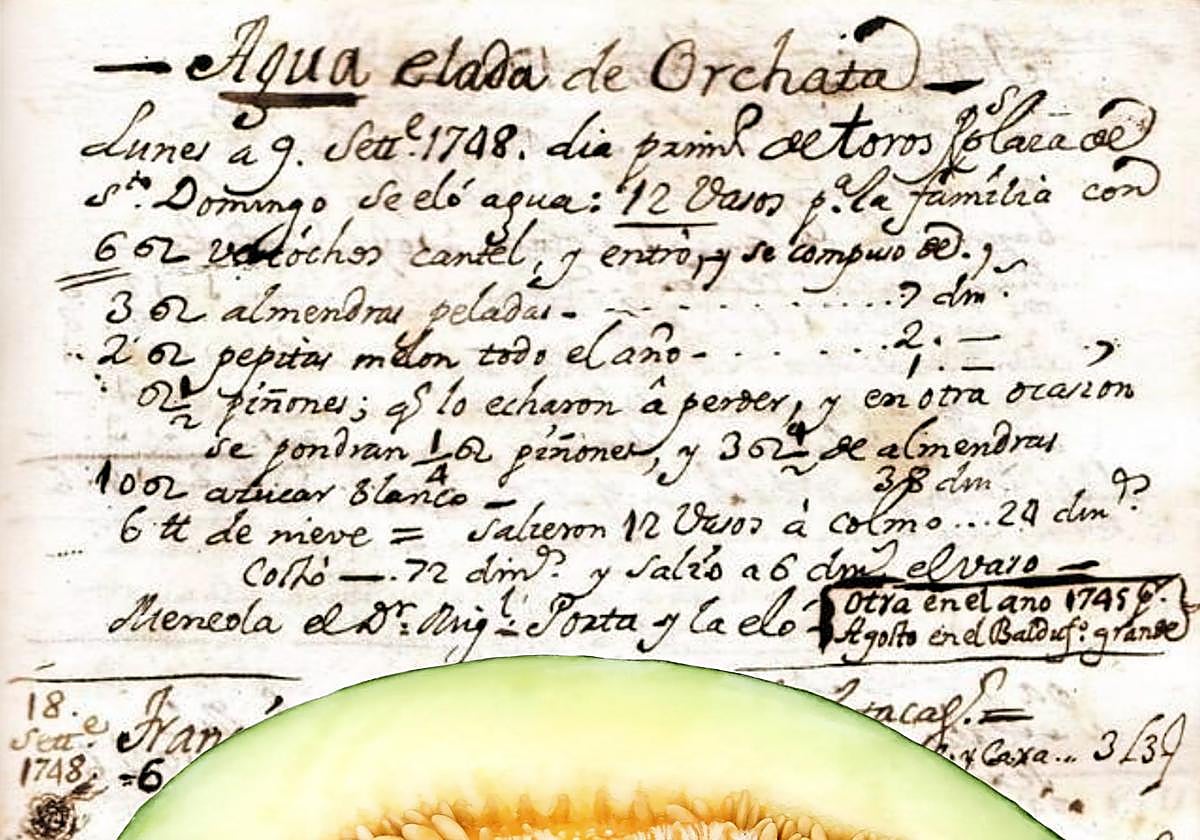 — Agua elada de Orchata —
Lunes a 9. Sett.e 1748. dia primr de toros Plaza de
Sto. Domingo se eló agua: 12 Vasos p.a la família con
6 62 cóches cantel, y entró, y se compuso de.
3 62 almendras peladas - . . . . . . . . . . 7 dm.
2 62 pepitas melon todo el año - . . . . . . 2. —
62 1/2 piñones; qe lo echaron â perder, y en otra ocasion 1. —
se pondran 1/4 62 piñones, y 3 62 1/2 de almendras
10 62 azúcar blanco — 38 dm
6 tt de nieve = Salieron 12 Vasos à colmo ... 24 dins.
Costó — . 72 dins. y salió a 6 dins. el vaso —
el Dr. Migl. Porta y la eló
Otra en el ano 1745 pr.
Agosto en el Balduf.o grande
18. Sett.e 1748.
Fran
=6
y Caxa... 3 L 3